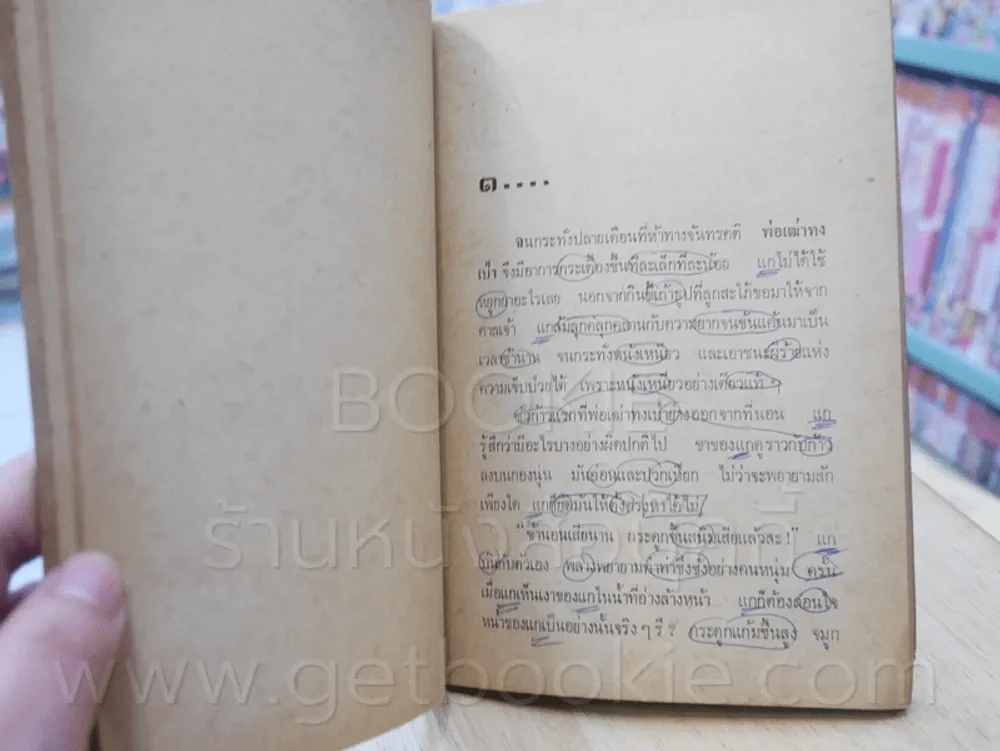 ๑....
จนกระทั่งปลายเดือนที่ห้าทางจันทรคติ พ่อเฒ่าทง
เป่า จึงมีอาการกระเตื้องขึ้นทีละเล็กทีละน้อย แกไม่ได้ใช้
หยูกยาอะไรเลย นอกจากกินขี้เถ้าธูปที่ลูกสะใภ้ขอมาให้จาก
ศาลเจ้า แกล้มลุกคลุกคลานกับความยากจนข้นแค้นมาเป็น
เวลาช้านาน จนกระทั่งหนังเหนียว และเอาชนะผีร้ายแห่ง
ความเจ็บป่วยได้ เพราะหนังเหนียวอย่างเดียวแท้ ๆ
ชั่วก้าวแรกที่พ่อเฒ่าทงเป่าย่างออกจากที่นอน แก
รู้สึกว่ามีอะไรบางอย่างผิดปกติไป ขาของแกดูราวกับก้าว
ลงบนกองนุ่น มันอ่อนและปวกเปียก ไม่ว่าจะพยายามสัก
เพียงใด แกก็ยืดมันให้ตั้งตรงหาได้ไม่
"ข้านอนเสียนาน กระดูกขึ้นสนิมเสียแล้วละ!" แก
บ่นกับตัวเอง พลางพยายามทำท่าขึงขังอย่างคนหนุ่ม ครั้น
เมื่อแกเห็นเงาของแกในน้ำที่อ่างล้างหน้า แกก็ต้องสอนใจ
หน้าของแกเป็นอย่างนั้นจริง ๆ รึ? กระดูกแก้มขึ้นสูง จมูก
BOOKIE
ร้านหนังสือบุคกี้
www.getbookie.com